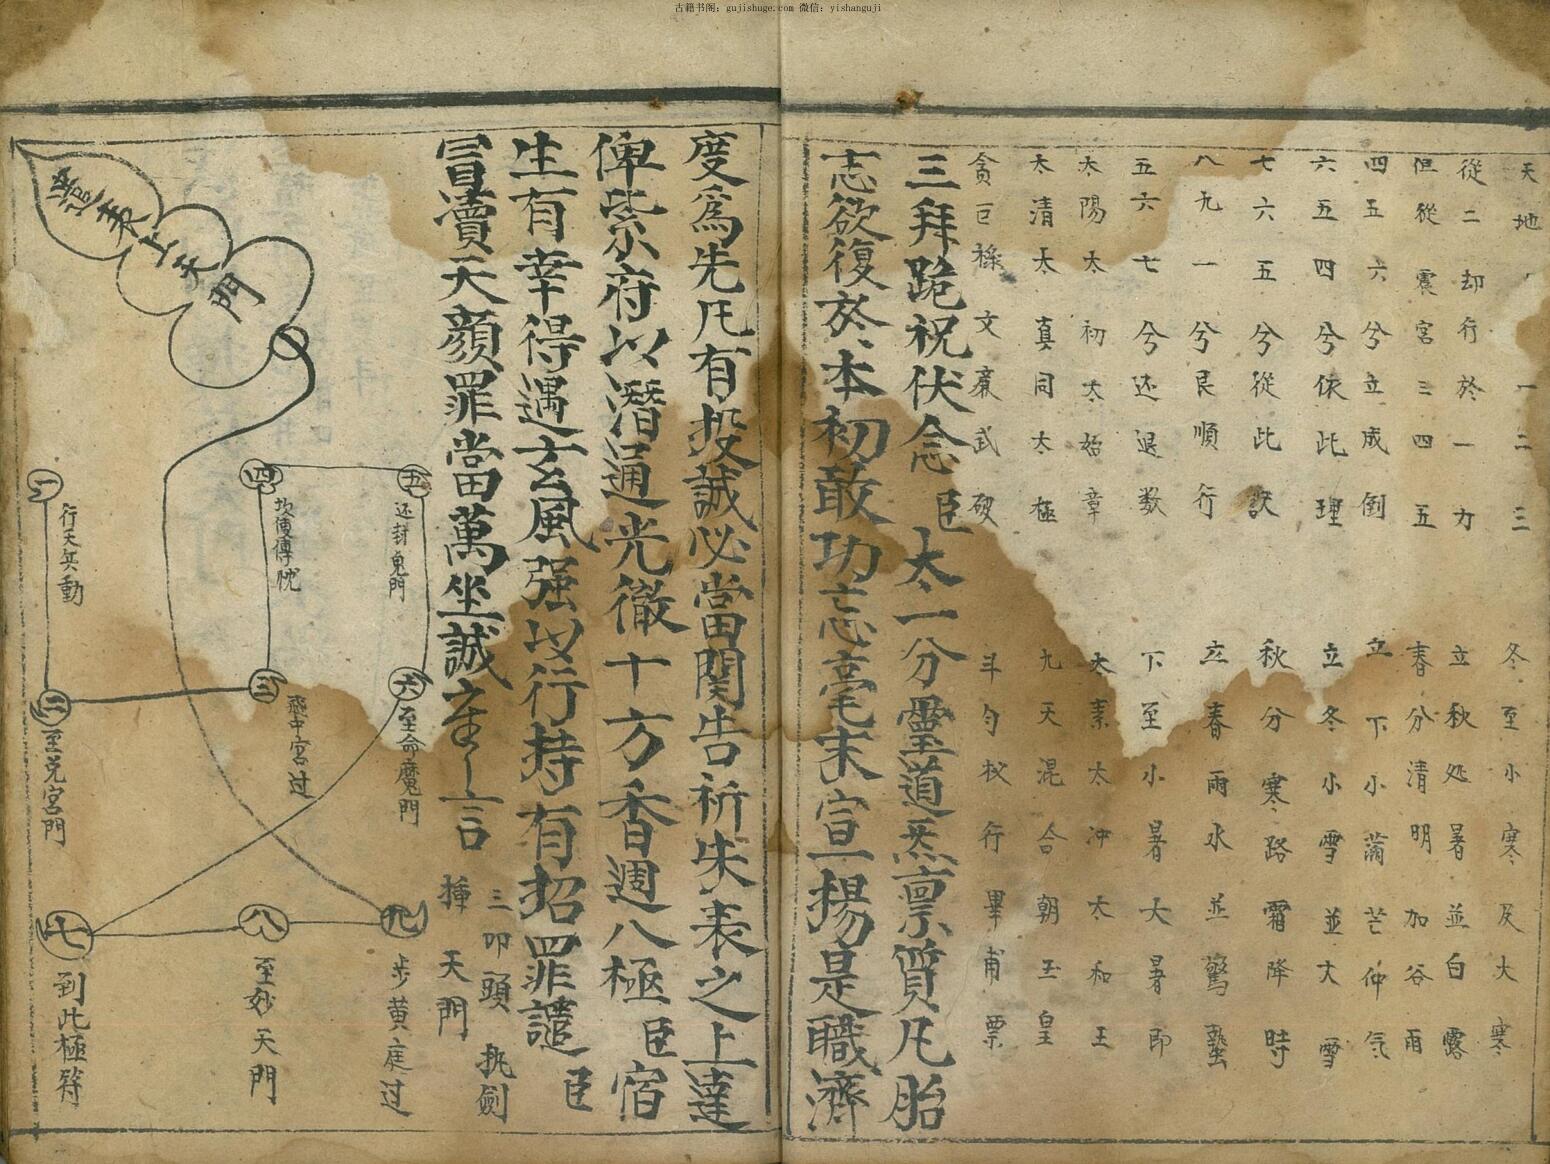 古籍书阁：gujishuge.com 微信：yishanguji
天地一二三 冬至小寒及大寒
從二却行於一方 立秋処暑並白露
但從震宮三四五 春分清明加谷雨
四五六兮立成倒 立下小滿芒仲气
六五四兮依此理 立冬小雪並大雪
七六五兮從此訣 秋分寒路霜降時
八九一兮艮順行 立春雨水並驚蟄
五六七兮还退数 下至小暑大暑即
太陽太初太始章 太素太冲太和王
太清太真同太極 九天混合朝玉皇
貪巨祿文廉武破 斗勺杈行畢甫票
三拜跪祝伏念臣太一分靈道炁禀質凡胎
志欲復於本初敢功忘毫末宣揚是職濟
度為先凡有投誠必當関告祈朱表之上達
俾紫府以潛通光徹十方香週八極臣宿
生有幸得遇玄風强以行持有招罪譴臣
冒瀆天顏罪當萬坐誠
言
三叩頭 执劍
揮天門
表上天門
一 行天兵動
二 至兑宮門
三 飛中宮过
四
五 还封鬼門
六 至命魔門
七 到此極符
八 至妙天門
九 步黄庭过